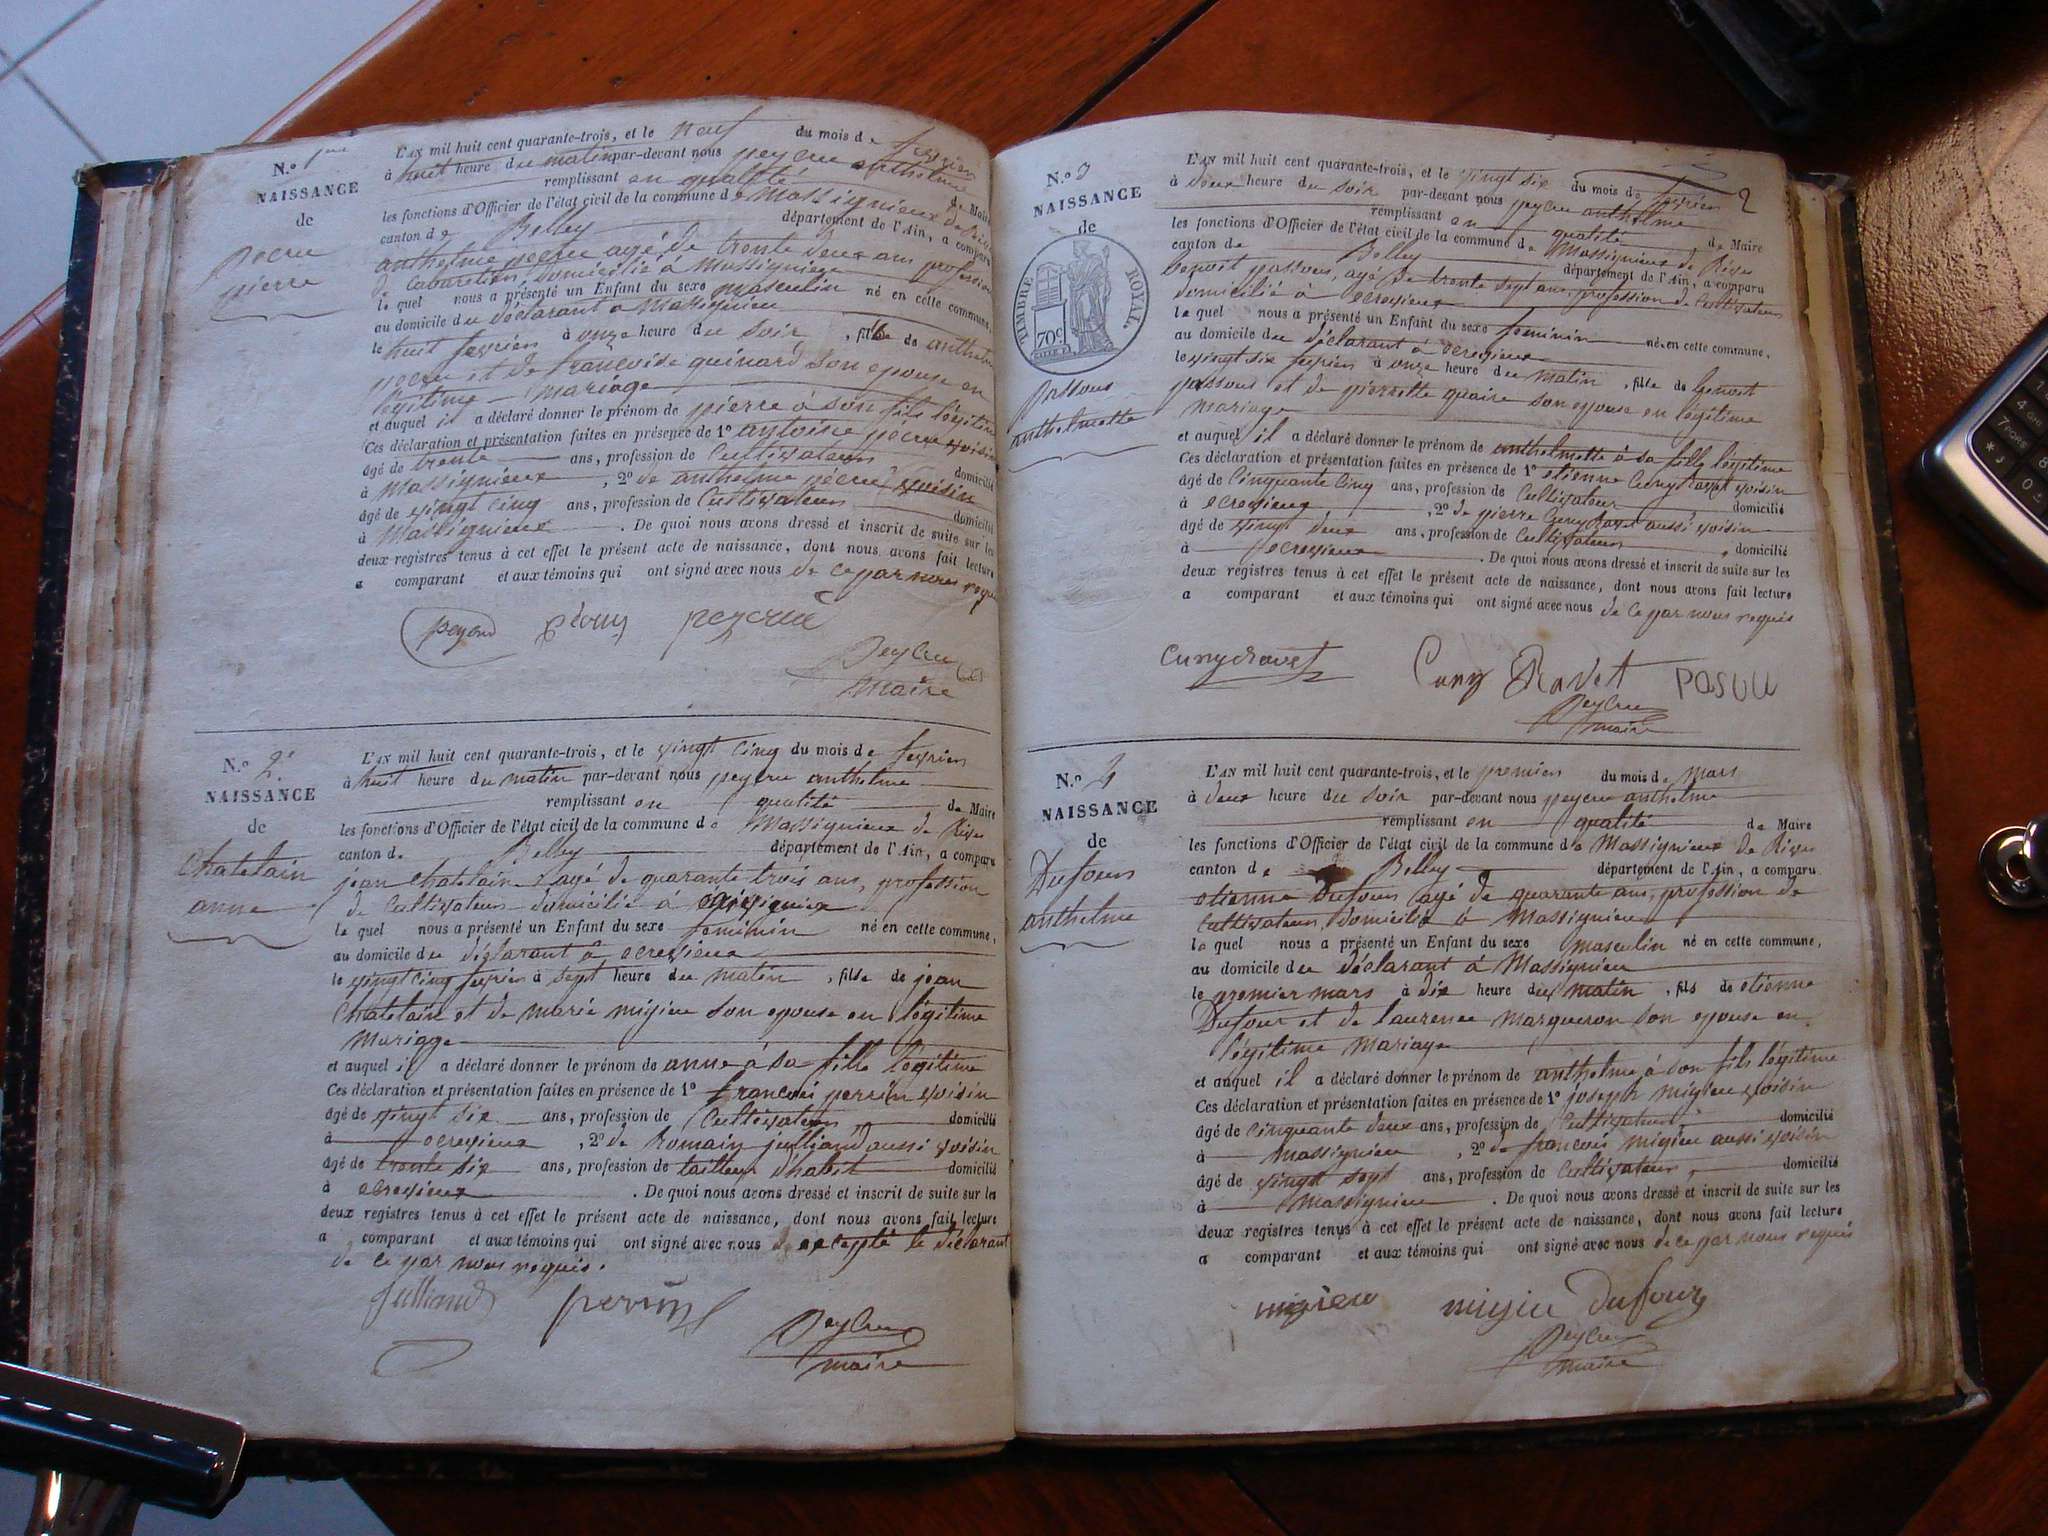 N.o 1
NAISSANCE
de
pecru
pierre
L'AN mil huit cent quarante-trois, et le neuf du mois de fevrier
à huit heure du matin par-devant nous peycru anthelme
remplissant en qualité de Maire
les fonctions d'Officier de l'état civil de la commune de Massignieux de Rives
canton de Belley département de l'Ain, a comparu
anthelme pecru agé de trente deux ans profession
de Cabaretier, domicilié à Massignieux
le quel nous a présenté un Enfant du sexe masculin né en cette commune,
au domicile du déclarant a Massignieu
le huit fevrier à onze heure du soir, fils de anthelme
pecru et de francoise guinard son epouse en
légitime mariage
et auquel il a déclaré donner le prénom de pierre à son fils légitime
Ces déclaration et présentation faites en présence de 1o antoine pecru voisin
âgé de trente ans, profession de Cultivateur domicilié
à Massignieux, 2o de anthelme pécru voisin
âgé de vingt cinq ans, profession de Cultivateur domicilié
à Massignieux. De quoi nous avons dressé et inscrit de suite sur les
deux registres tenus à cet effet le présent acte de naissance, dont nous avons fait lecture
a comparant et aux témoins qui ont signé avec nous de ce par nous requis
peycru
maire
N.o 2
NAISSANCE
de
Chatelain
anne
L'AN mil huit cent quarante-trois, et le vingt cinq du mois de fevrier
à huit heure du matin par-devant nous peycru anthelme
remplissant en qualité de Maire
les fonctions d'Officier de l'état civil de la commune de Massignieux de Rives
canton de Belley département de l'Ain, a comparu
jean Chatelain agé de quarante trois ans, profession
de Cultivateur domicilié à
le quel nous a présenté un Enfant du sexe feminin né en cette commune,
au domicile du déclarant à ecrevieux
le vingt cinq fevrier à sept heure du matin, fille de jean
Chatelain et de marie migieu son epouse en légitime
Mariage
et auquel il a déclaré donner le prénom de anne à sa fille legitime
Ces déclaration et présentation faites en présence de 1o francois perrin voisin
âgé de vingt six ans, profession de Cultivateur domicilié
à ecrevieux, 2o de Romain julliand aussi voisin
âgé de trente six ans, profession de tailleur d'habit domicilié
à ecrevieux. De quoi nous avons dressé et inscrit de suite sur les
deux registres tenus à cet effet le présent acte de naissance, dont nous avons fait lecture
a comparant et aux témoins qui ont signé avec nous excepté le déclarant
de ce par nous requis.
julliand perrin
peycru
maire
2
N.o 3
NAISSANCE
de
TIMBRE ROYAL.
70c
passous
anthelmette
L'AN mil huit cent quarante-trois, et le vingt six du mois de fevrier
à deux heure du soir par-devant nous peycru anthelme
remplissant en qualité de Maire
les fonctions d'Officier de l'état civil de la commune de Massignieux de Rives
canton de Belley département de l'Ain, a comparu
benoit passous, agé de trente sept ans, profession de Cultivateur
domicilié à ecrevieux
le quel nous a présenté un Enfant du sexe feminin né en cette commune,
au domicile du déclarant à ecrevieux
le vingt six fevrier à onze heure du matin, fille de benoit
passous et de pierrette quaire son epouse en légitime
mariage
et auquel il a déclaré donner le prénom de anthelmette à sa fille légitime
Ces déclaration et présentation faites en présence de 1o etienne Cuny Ravet voisin
âgé de Cinquante Cinq ans, profession de Cultivateur domicilié
à ecrevieux, 2o de pierre Cuny Ravet aussi voisin
âgé de vingt deux ans, profession de Cultivateur, domicilié
à ecrevieux. De quoi nous avons dressé et inscrit de suite sur les
deux registres tenus à cet effet le présent acte de naissance, dont nous avons fait lecture
a comparant et aux témoins qui ont signé avec nous de ce par nous requis
Cunyravet Cuny Ravet pasou
peycru
maire
N.o 4
NAISSANCE
de
Dufour
anthelme
L'AN mil huit cent quarante-trois, et le premier du mois de mars
à deux heure du soir par-devant nous peycru anthelme
remplissant en qualité de Maire
les fonctions d'Officier de l'état civil de la commune de Massignieux de Rives
canton de Belley département de l'Ain, a comparu
etienne Dufour agé de quarante ans, profession de
Cultivateur, domicilié à Massignieu
le quel nous a présenté un Enfant du sexe masculin né en cette commune,
au domicile du déclarant à Massignieu
le premier mars à dix heure du matin, fils de etienne
Dufour et de laurence Margueron son epouse en
légitime Mariage
et auquel il a déclaré donner le prénom de anthelme à son fils légitime
Ces déclaration et présentation faites en présence de 1o joseph migieu voisin
âgé de cinquante deux ans, profession de Cultivateur domicilié
à Massignieu, 2o de francois migieu aussi voisin
âgé de vingt sept ans, profession de Cultivateur, domicilié
à Massignieu. De quoi nous avons dressé et inscrit de suite sur les
deux registres tenus à cet effet le présent acte de naissance, dont nous avons fait lecture
a comparant et aux témoins qui ont signé avec nous de ce par nous requis
migieu migieu dufour
peycru
maire